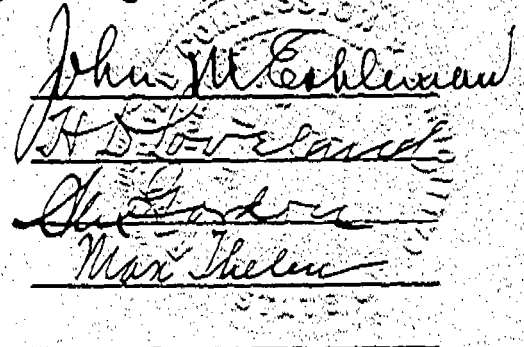 COMMISSION
John M. Eshleman
H. D. Loveland
Alex Gordon
Max Thelen